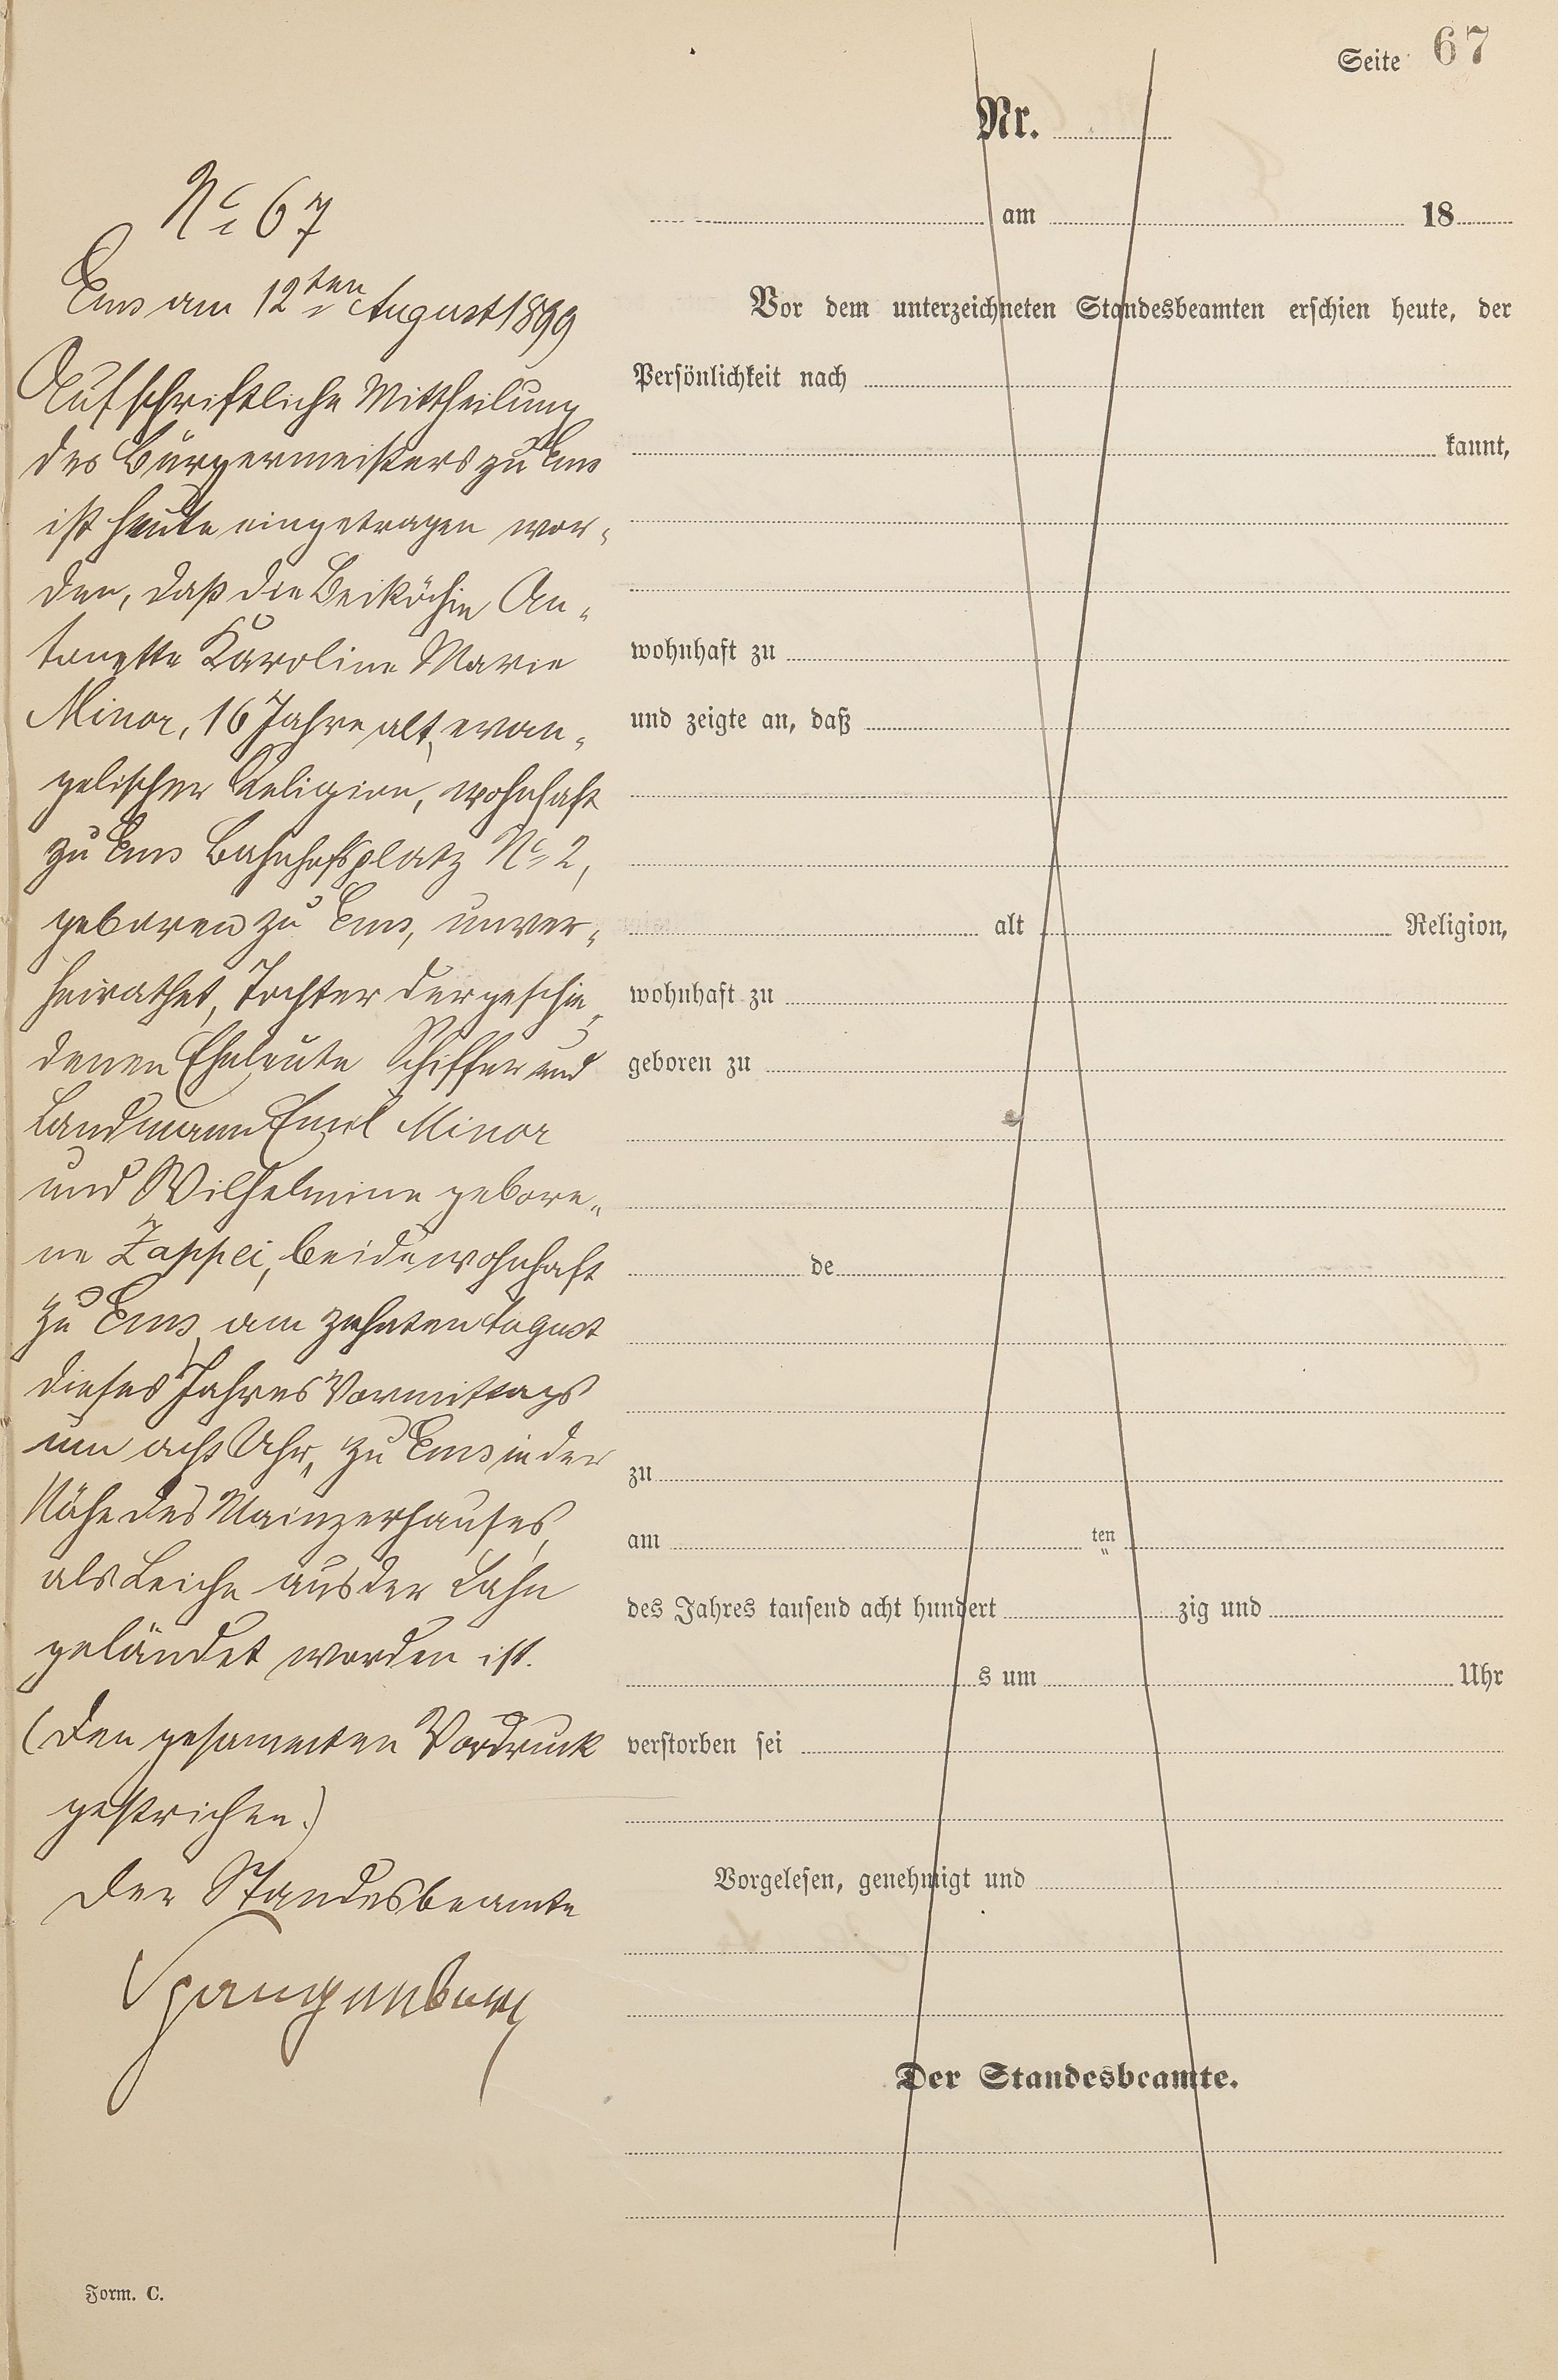 Seite 67
№ 67
Ems am 12ten August 1899
Auf schriftliche Mittheilung
des Bürgermeisters zu Ems
ist heute eingetragen wor-
den, daß die Beiköchin An-
tonette Karoline Marie
Minor, 16 Jahre alt, evan-
gelischer Religion, wohnhaft
zu Ems Bahnhofsplatz № 2,
geboren zu Ems, unver-
heirathet, Tochter der geschie-
denen Eheleute Schiffer und
Landmann Emil Minor
und Wilhelmine gebore-
ne Zappei, beide wohnhaft
zu Ems, am zehnten August
dieses Jahres Vormittags
um acht Uhr, zu Ems in der
Nähe des Mainzerhauses,
als Leiche aus der Lahn
geländet worden ist.
(Den gesammten Vordruck
gestrichen.)
Der Standesbeamte
Spangenberg
Form. C.
Nr.
am 18
Vor dem unterzeichneten Standesbeamten erschien heute, der
Persönlichkeit nach
kannt,
wohnhaft zu
und zeigte an, daß
alt Religion,
wohnhaft zu
geboren zu
de
zu
am ten
des Jahres tausend acht hundert zig und
s um Uhr
verstorben sei
Vorgelesen, genehmigt und
Der Standesbeamte.